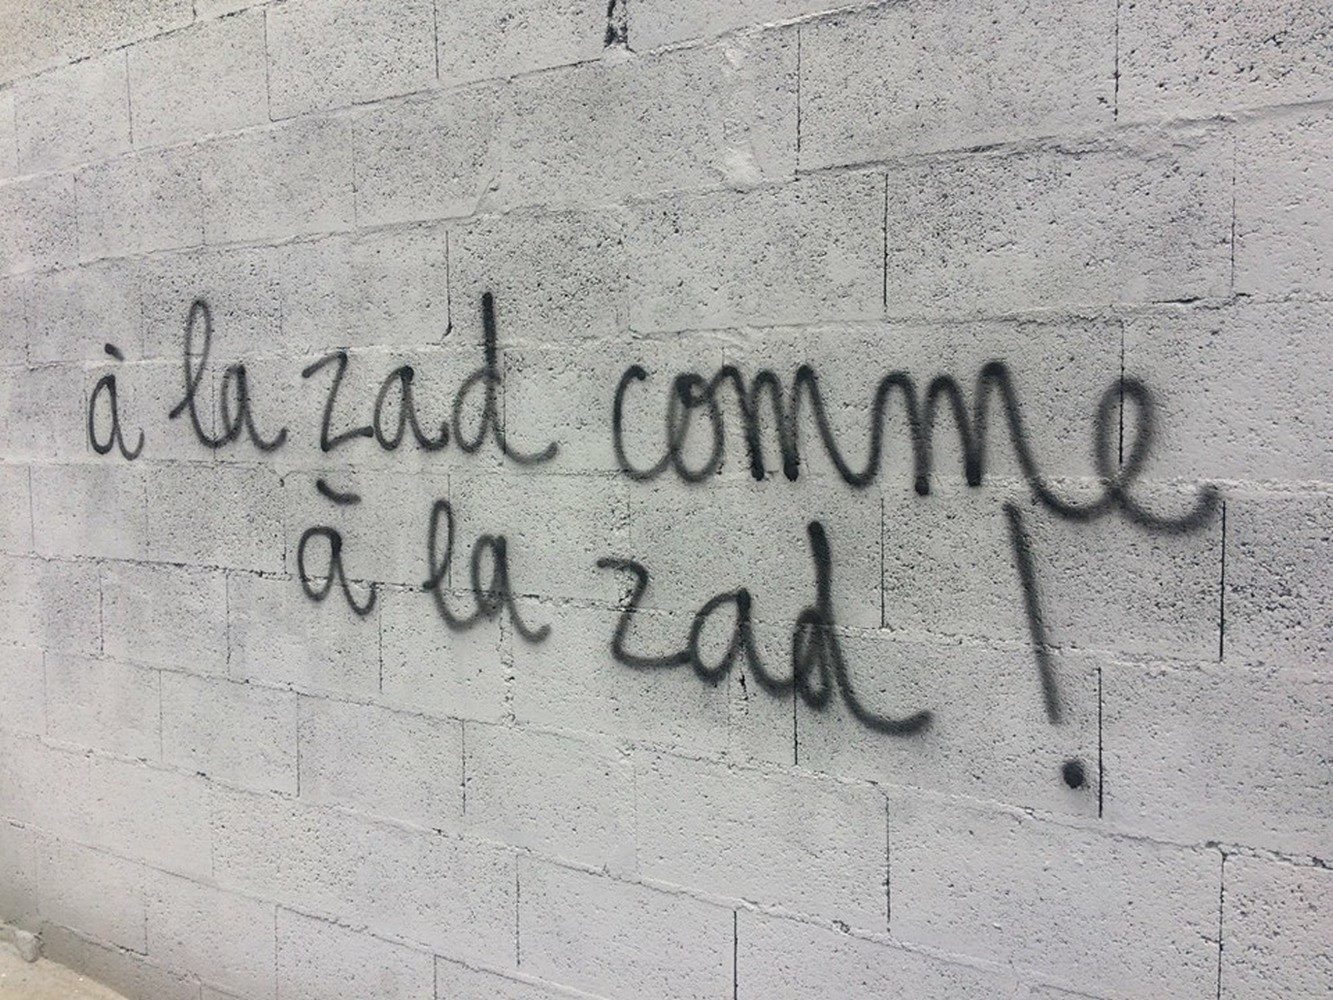 à la zad comme
à la zad !